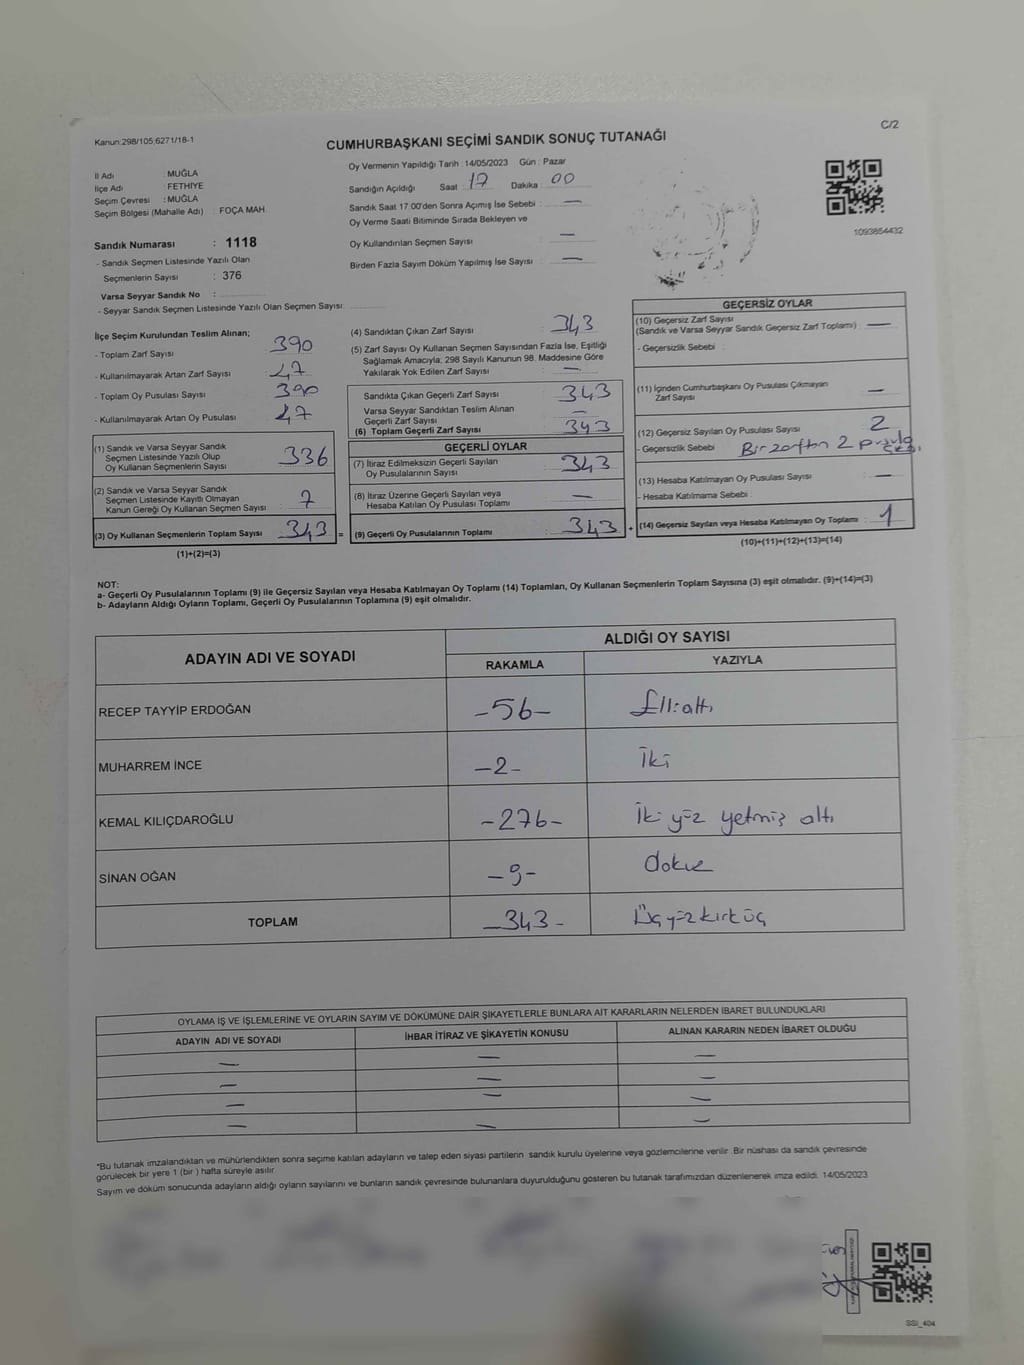 Kanun:298/105;6271/18-1
C/2
CUMHURBAŞKANI SEÇİMİ SANDIK SONUÇ TUTANAĞI
İl Adı : MUĞLA
İlçe Adı : FETHİYE
Seçim Çevresi : MUĞLA
Seçim Bölgesi (Mahalle Adı) : FOÇA MAH.
Sandık Numarası : 1118
- Sandık Seçmen Listesinde Yazılı Olan
Seçmenlerin Sayısı : 376
Varsa Seyyar Sandık No :
- Seyyar Sandık Seçmen Listesinde Yazılı Olan Seçmen Sayısı:
Oy Vermenin Yapıldığı Tarih : 14/05/2023 Gün : Pazar
Sandığın Açıldığı Saat : 17 Dakika : 00
Sandık Saat 17:00'den Sonra Açımış İse Sebebi : —
Oy Verme Saati Bitiminde Sırada Bekleyen ve
Oy Kullandırılan Seçmen Sayısı : —
Birden Fazla Sayım Döküm Yapılmış İse Sayısı : —
1093864432
İlçe Seçim Kurulundan Teslim Alınan;
- Toplam Zarf Sayısı : 390
- Kullanılmayarak Artan Zarf Sayısı : 47
- Toplam Oy Pusulası Sayısı : 390
- Kullanılmayarak Artan Oy Pusulası : 47
(1) Sandık ve Varsa Seyyar Sandık
Seçmen Listesinde Yazılı Olup
Oy Kullanan Seçmenlerin Sayısı : 336
(2) Sandık ve Varsa Seyyar Sandık
Seçmen Listesinde Kayıtlı Olmayan
Kanun Gereği Oy Kullanan Seçmen Sayısı : 7
(3) Oy Kullanan Seçmenlerin Toplam Sayısı : 343 =
(1)+(2)=(3)
(4) Sandıktan Çıkan Zarf Sayısı : 343
(5) Zarf Sayısı Oy Kullanan Seçmen Sayısından Fazla İse, Eşitliği
Sağlamak Amacıyla; 298 Sayılı Kanunun 98. Maddesine Göre
Yakılarak Yok Edilen Zarf Sayısı : —
Sandıkta Çıkan Geçerli Zarf Sayısı : 343
Varsa Seyyar Sandıktan Teslim Alınan
Geçerli Zarf Sayısı : —
(6) Toplam Geçerli Zarf Sayısı : 343
GEÇERLİ OYLAR
(7) İtiraz Edilmeksizin Geçerli Sayılan
Oy Pusulalarının Sayısı : 343
(8) İtiraz Üzerine Geçerli Sayılan veya
Hesaba Katılan Oy Pusulası Toplamı : —
(9) Geçerli Oy Pusulalarının Toplamı : 343 +
GEÇERSİZ OYLAR
(10) Geçersiz Zarf Sayısı
(Sandık ve Varsa Seyyar Sandık Geçersiz Zarf Toplamı) : —
- Geçersizlik Sebebi :
(11) İçinden Cumhurbaşkanı Oy Pusulası Çıkmayan
Zarf Sayısı : —
(12) Geçersiz Sayılan Oy Pusulası Sayısı : 2
- Geçersizlik Sebebi : Bir zarftan 2 pusula
(13) Hesaba Katılmayan Oy Pusulası Sayısı : —
- Hesaba Katılmama Sebebi :
(14) Geçersiz Sayılan veya Hesaba Katılmayan Oy Toplamı : 1
(10)+(11)+(12)+(13)=(14)
NOT:
a- Geçerli Oy Pusulalarının Toplamı (9) ile Geçersiz Sayılan veya Hesaba Katılmayan Oy Toplamı (14) Toplamları, Oy Kullanan Seçmenlerin Toplam Sayısına (3) eşit olmalıdır. (9)+(14)=(3)
b- Adayların Aldığı Oyların Toplamı, Geçerli Oy Pusulalarının Toplamına (9) eşit olmalıdır.
ADAYIN ADI VE SOYADI
ALDIĞI OY SAYISI
RAKAMLA YAZIYLA
RECEP TAYYİP ERDOĞAN -56- Elli altı
MUHARREM İNCE -2- İki
KEMAL KILIÇDAROĞLU -276- İki yüz yetmiş altı
SİNAN OĞAN -9- dokuz
TOPLAM -343- Üçyüzkırküç
OYLAMA İŞ VE İŞLEMLERİNE VE OYLARIN SAYIM VE DÖKÜMÜNE DAİR ŞİKAYETLERLE BUNLARA AİT KARARLARIN NELERDEN İBARET BULUNDUKLARI
ADAYIN ADI VE SOYADI İHBAR İTİRAZ VE ŞİKAYETİN KONUSU ALINAN KARARIN NEDEN İBARET OLDUĞU
— — —
— — —
— — —
— — —
*Bu tutanak imzalandıktan ve mühürlendikten sonra seçime katılan adayların ve talep eden siyasi partilerin sandık kurulu üyelerine veya gözlemcilerine verilir. Bir nüshası da sandık çevresinde
görülecek bir yere 1 (bir ) hafta süreyle asılır.
Sayım ve döküm sonucunda adayların aldığı oyların sayılarını ve bunların sandık çevresinde bulunanlara duyurulduğunu gösteren bu tutanak tarafımızdan düzenlenerek imza edildi. 14/05/2023
SSI_404